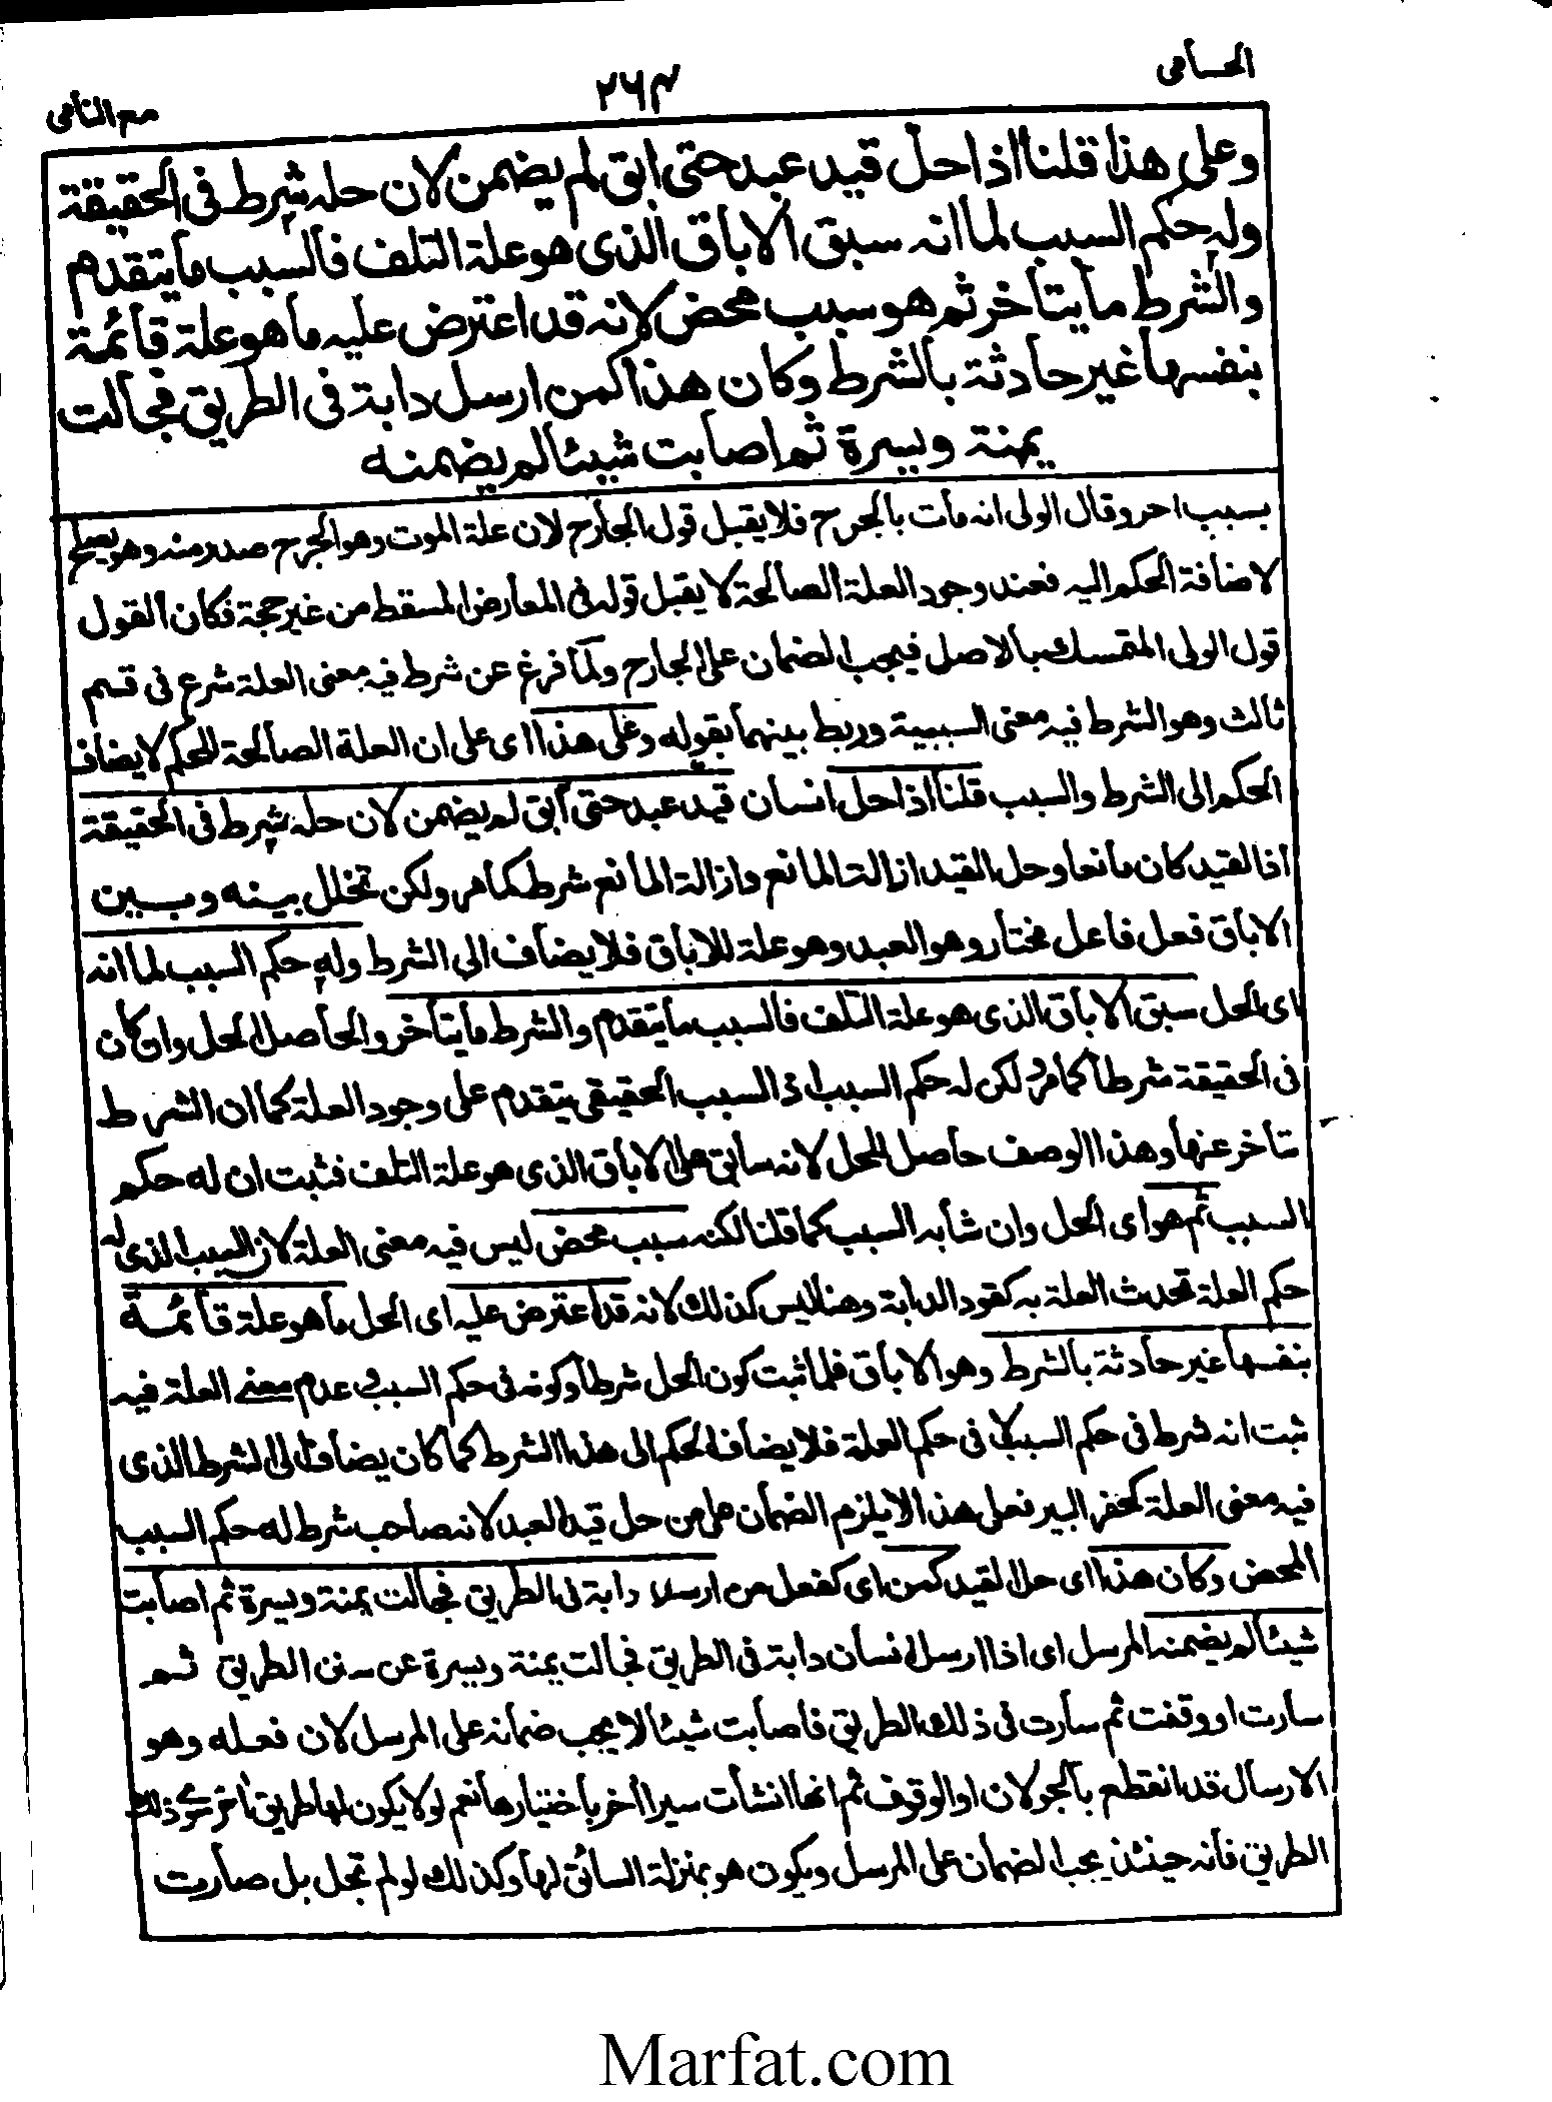 الحسامی
۲۶۴
مع النامی
وعلی هذا قلنا اذا حل قید عبد حتی ابق لم یضمن لان حله شرط فی الحقیقة
وله حکم السبب لما انه سبق الاباق الذی هو علة التلف فالسبب ما یتقدم
والشرط ما یتأخر ثم هو سبب محض لانه قد اعترض علیه ما هو علة قائمة
بنفسها غیر حادثة بالشرط وکان هذا کمن ارسل دابة فی الطریق فجالت
یمنة ویسرة ثم اصابت شیئا لم یضمنه
بسبب اخر وقال الولی انه مات بالجرح فلا یقبل قول الجارح لان علة الموت وهو الجرح صدر منه وهو یصلح
لاضافة الحکم الیه فعند وجود العلة الصالحة لا یقبل قوله فی المعارض المسقط من غیر حجة فکان القول
قول الولی المتمسك بالاصل فیجب الضمان علی الجارح ولما فرغ عن شرط فیه معنی العلة شرع فی قسم
ثالث وهو الشرط فیه معنی السببیة وربط بینهما بقوله وعلی هذا ای علی ان العلة الصالحة للحکم لا یضاف
الحکم الی الشرط والسبب قلنا اذا حل انسان قید عبد حتی ابق لم یضمن لان حله شرط فی الحقیقة
اذ القید کان مانعا وحل القید ازالة المانع وازالة المانع شرط کما مر ولکن تخلل بینه وبین
الاباق فعل فاعل مختار وهو العبد وهو علة للاباق فلا یضاف الی الشرط وله حکم السبب لما انه
ای الحل سبق الاباق الذی هو علة التلف فالسبب ما یتقدم والشرط ما یتأخر والحاصل ان الحل وان کان
فی الحقیقة شرطا کما مر لکن له حکم السبب اذ السبب الحقیقی یتقدم علی وجود العلة کما ان الشرط
یتأخر عنها وهذا الوصف حاصل للحل لانه سابق علی الاباق الذی هو علة التلف فثبت ان له حکم
السبب ثم هو ای الحل وان شابه السبب کما قلنا لکنه سبب محض لیس فیه معنی العلة لان السبب الذی له
حکم العلة تحدث العلة به کقود الدابة وهنا لیس کذلك لانه قد اعترض علیه ای الحل ما هو علة قائمة
بنفسها غیر حادثة بالشرط وهو الاباق فلما ثبت کون الحل شرطا وکونه فی حکم السبب وعدم معنی العلة فیه
ثبت انه شرط فی حکم السبب لا فی حکم العلة فلا یضاف الحکم الی هذا الشرط کما کان یضاف الی الشرط الذی
فیه معنی العلة کحفر البیر فعلی هذا لا یلزم الضمان علی من حل قید العبد لانه صاحب شرط له حکم السبب
المحض وکان هذا ای حل القید کمن ای کفعل من ارسل دابة فی الطریق فجالت یمنة ویسرة ثم اصابت
شیئا لم یضمنه المرسل ای اذا ارسل انسان دابة فی الطریق فجالت یمنة ویسرة عن سنن الطریق ثم
سارت او وقفت ثم سارت فی ذلك الطریق فاصابت شیئا لا یجب ضمانه علی المرسل لان فعله وهو
الارسال قد انقطع بالجولان او الوقوف ثم انها انشأت سیرا اخر باختیارها نعم لو لا یکون لها طریق اخر سوی ذلك
الطریق فانه حینئذ یجب الضمان علی المرسل ویکون هو بمنزلة السائق لها وکذلك لو لم تجل بل صارت
Marfat.com